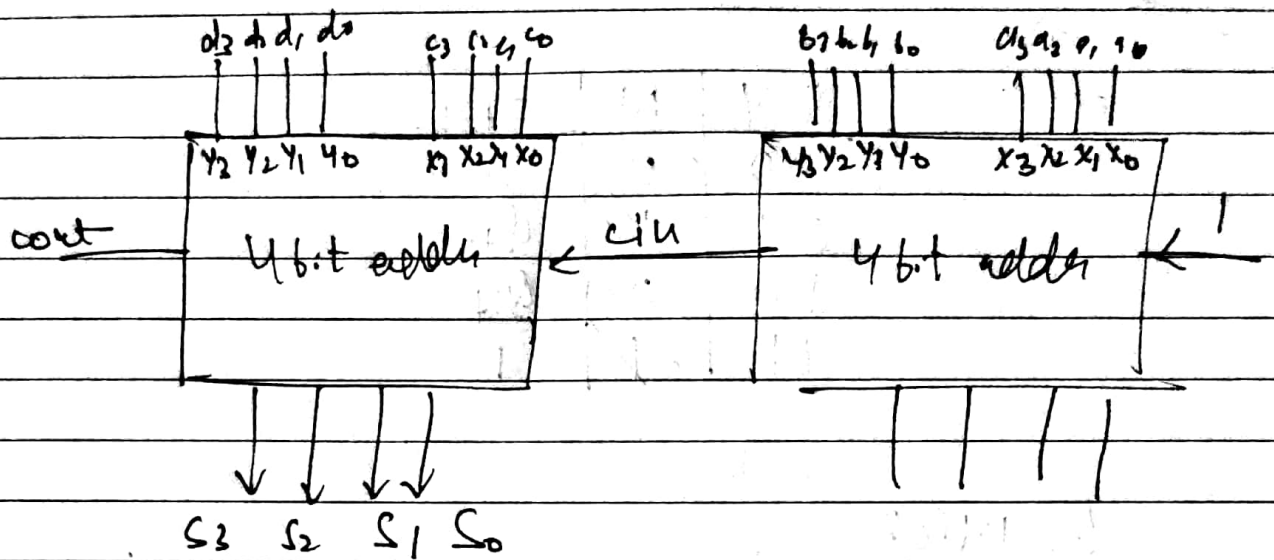 d3 d2 d1 d0 c3 c2 c1 c0 b3 b2 b1 b0 a3 a2 a1 a0
Y3 Y2 Y1 Y0 X3 X2 X1 X0 Y3 Y2 Y1 Y0 X3 X2 X1 X0
cout 4 bit adder cin 4 bit adder 1
S3 S2 S1 S0